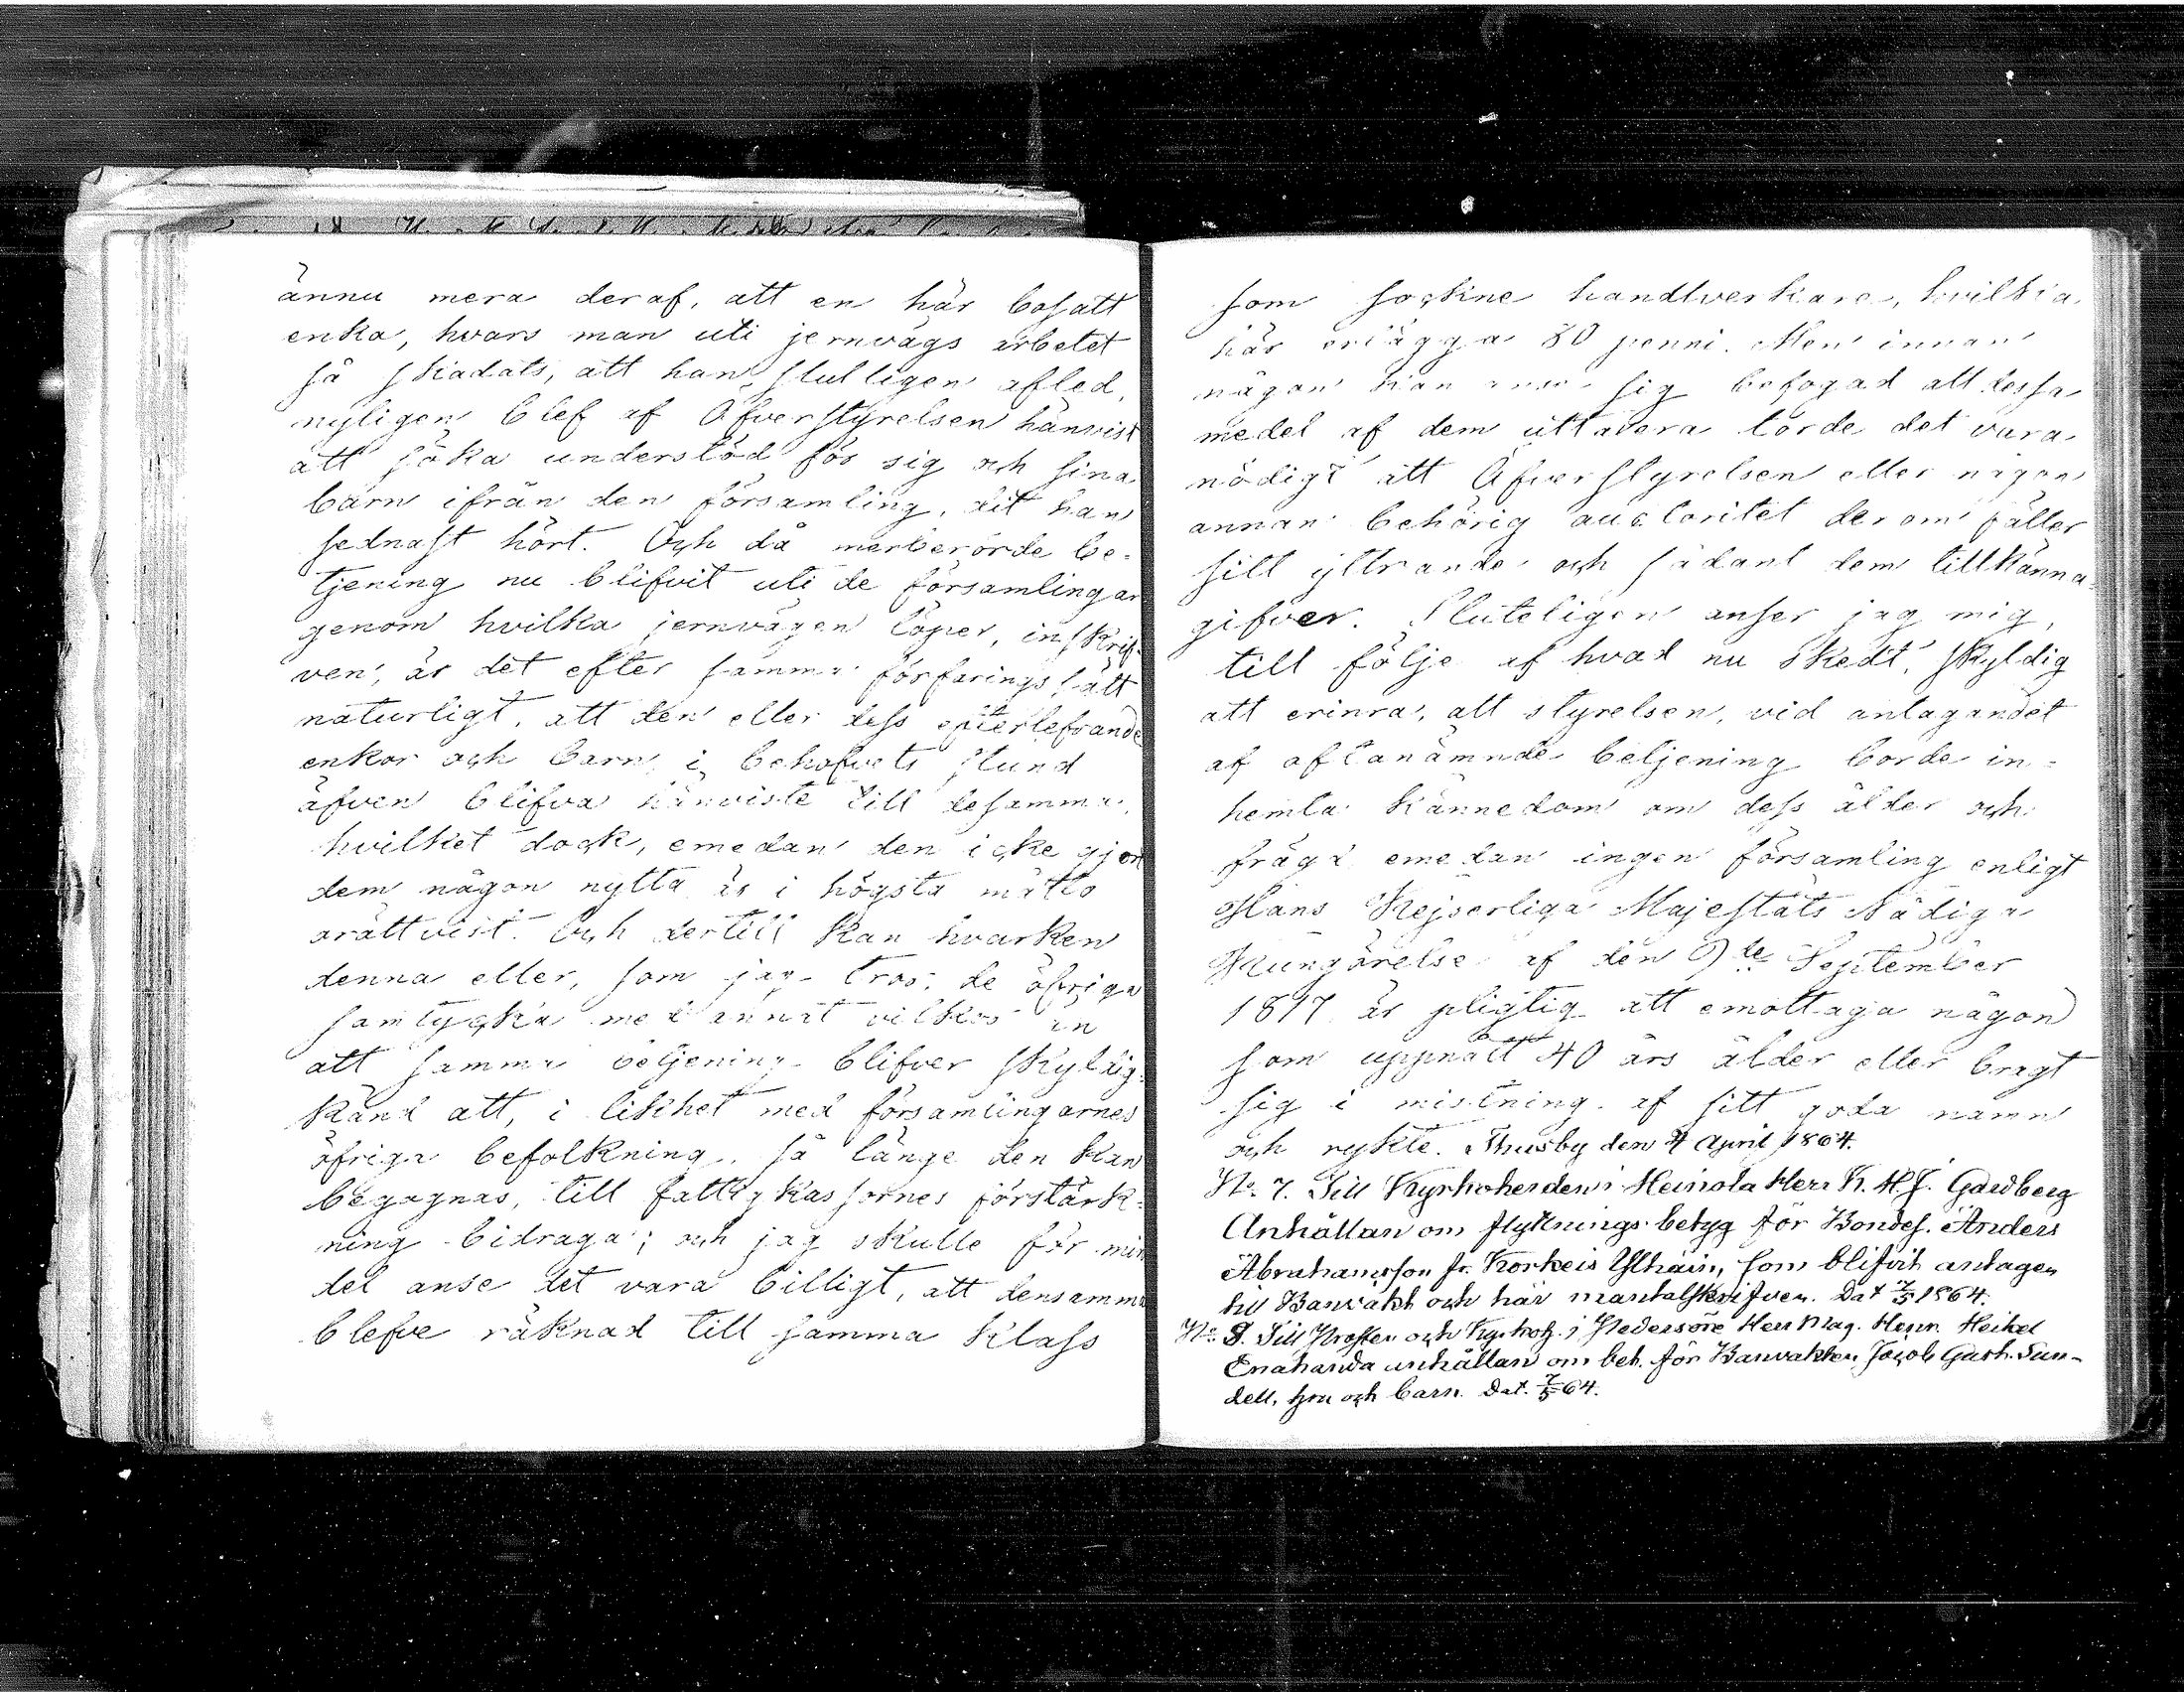 ännu mera deraf, att en här bosatt
enka, hvars man uti jernvägs arbetet
så skadats, att han slutligen afled,
nyligen blef af Öfverstyrelsen hänvist
att söka understöd för sig och sina
barn ifrån den församling, dit han
sednast hört. Och då merberörde be-
tjening nu blifvit uti de församlingar
genom hvilka jernvägen löper, inskrif-
ven, är det efter samma förfaringssätt
naturligt, att den eller dess efterlefvande
enkor och barn i behofvets stund
äfven blifva hänviste till desamma,
hvilket dock, emedan den icke gjort
dem någon nytta är i högsta måtto
orättvist. Och dertill kan hvarken
denna eller, som jag tror, de öfriga
samtycka med annat vilkor än
att samma betjening blifver skyldig
känd att, i likhet med församlingarnes
öfriga befolkning, så länge den kan
begagnas, till fattigkassornes förstärk-
ning bidraga; och jag skulle för min
del anse det vara billigt, att densamma
blefve räknad till samma klass
som sockne handtverkare, hvilka
här erlägga 80 penni. Men innan
någon kan anse sig befogad att dessa
medel af dem uttaxera torde det vara
nödigt att Öfverstyrelsen eller någon
annan behörig auctoritet derom fäller
sitt yttrande och sådant dem tillkänna-
gifver. Sluteligen anser jag mig,
till följe af hvad nu skedt, skyldig
att erinra, att styrelsen, vid antagandet
af oftanämnde betjening borde in-
hemta kännedom om dess ålder och
frägd emedan ingen församling enligt
Hans Kejserliga Majestäts Nådiga
Kungörelse af den 9de September
1817 är pligtig att emottaga någon
som uppnått 40 års ålder eller bragt
sig i mistning af sitt goda namn
och rykte. Thusby den 4 April 1864.
No. 7. Till Kyrkoherden i Heinola Herr K. H. J. Gardberg
Anhållan om flyttnings betyg för Bondes. Anders
Abrahamsson fr. Korkeis som blifvit antagen
till Banvakt och här mantalskrifven. Dat 7/5 1864.
No. 8. Till Prosten och Kyrkoh. i Pedersöre Herr Mag. Henr. Heikel
Enahanda anhållan om bet. för Banvakten Jacob Gust. Sun-
dell, hru och barn. Dat. 7/5 64.